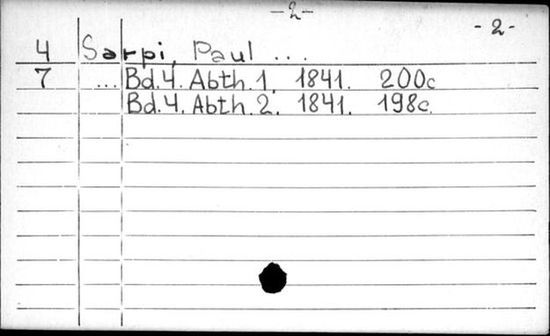 -2-
-2-
4 Sarpi, Paul ...
7 ... Bd.4. Abth.1. 1841. 200c
Bd.4. Abth.2. 1841. 198c.